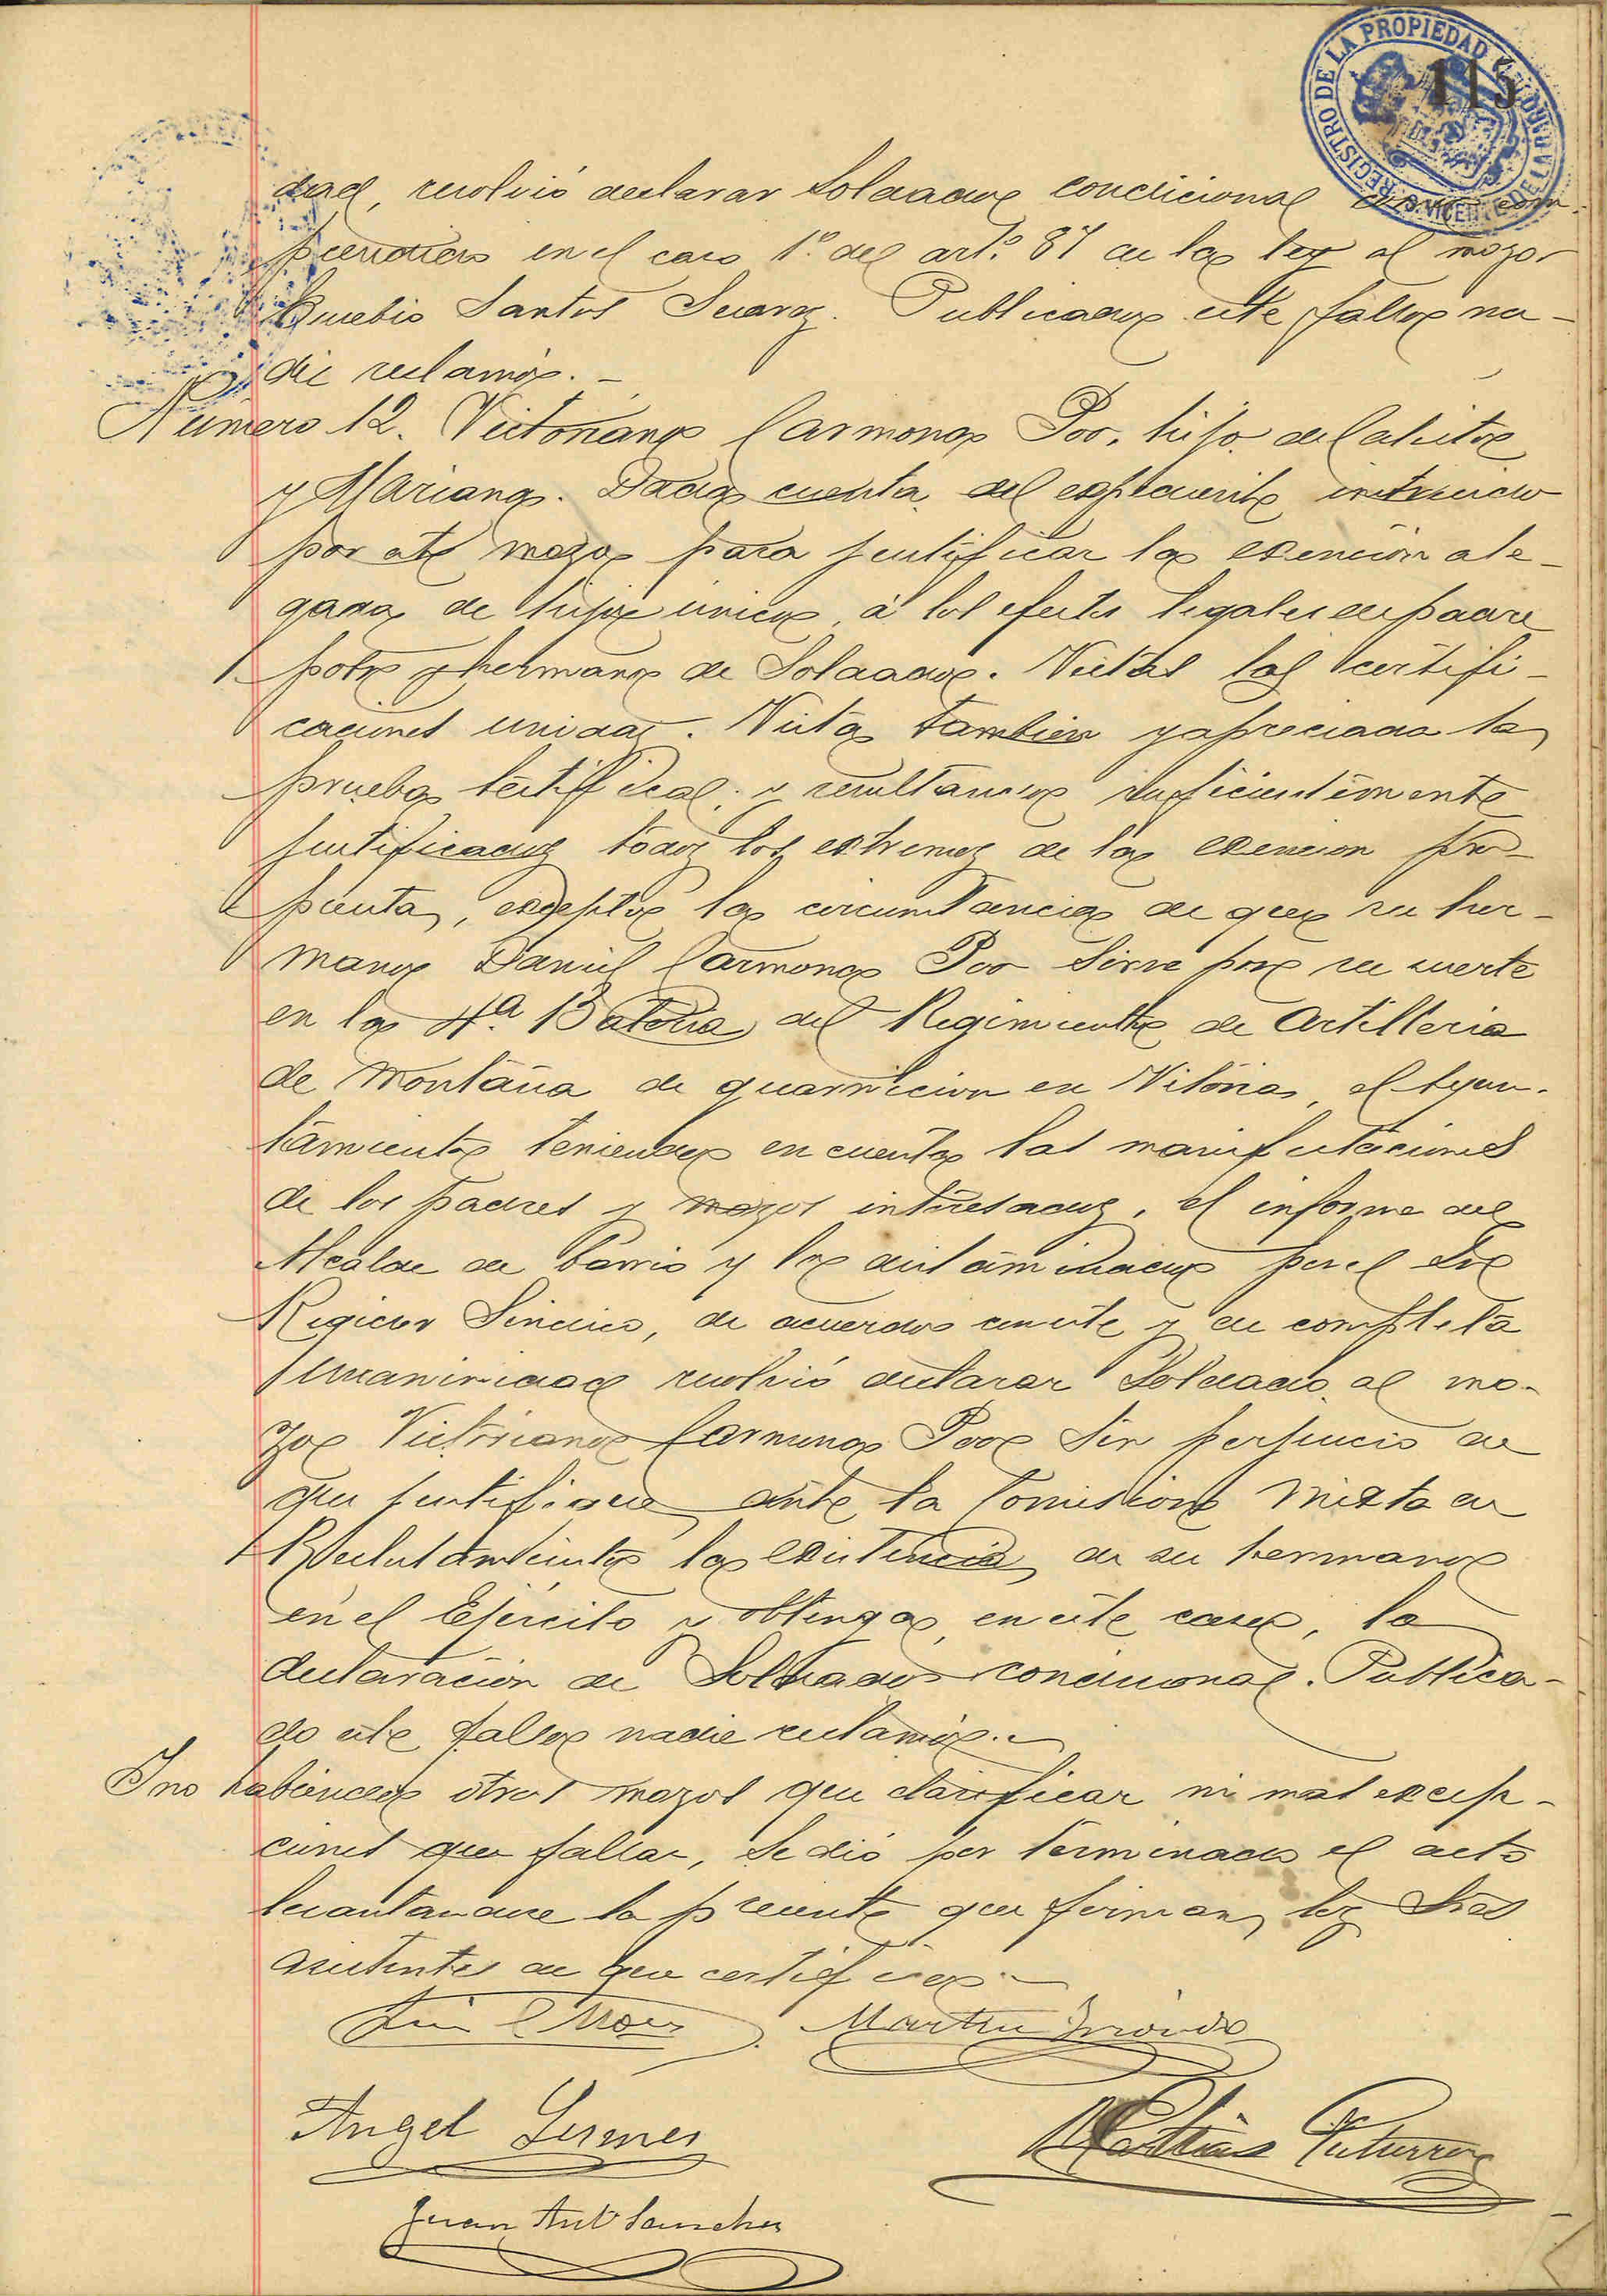 115
REGISTRO DE LA PROPIEDAD
S. VICENTE DE LA BARQUERA
dad, resolvió declarar Soldado condicional com-
prendido en el caso 1º del artº 87 de la ley al mozo
Eusebio Santos Suarez. Publicado este fallo na-
die reclamó.-
Número 12. Victoriano Carmona Poo, hijo de Calisto
y Mariana. Dada cuenta del expediente instruido
por este mozo para justificar la exención ale-
gada de hijo único, á los efectos legales de padre
pobre y hermano de Soldado. Vistas las certifi-
caciones unidas. Vista tambien y apreciada la
prueba testifical; y resultando suficientemente
justificados todos los extremos de la exencion pro-
puesta, excepto la circunstancia de que su her-
mano Daniel Carmona Poo sirve por su suerte
en la 4ª Bateria del Regimiento de Artilleria
de Montaña de guarnicion en Vitoria, el Ayun-
tamiento teniendo en cuenta las manifestaciones
de los padres y mozos interesados, el informe del
Alcalde de barrio y lo dictaminado por el Sr
Regidor Síndico, de acuerdo con este y en completa
unanimidad resolvió declarar Soldado al mo-
zo Victoriano Carmona Poo sin perjuicio de
que justifique ante la Comision Mixta de
Reclutamiento la existencia de su hermano
en el Ejército y obtenga, en este caso, la
declaración de Soldado condicional. Publica-
do este fallo nadie reclamó.-
Y no habiendo otros mozos que clasificar ni mas excep-
ciones que fallar, se dió por terminado el acto
levantandose la presente que firman los Sres
asistentes de que certifico.-
Martin
Angel Lermes
Matias Gutierrez
Juan Antº Sanchez